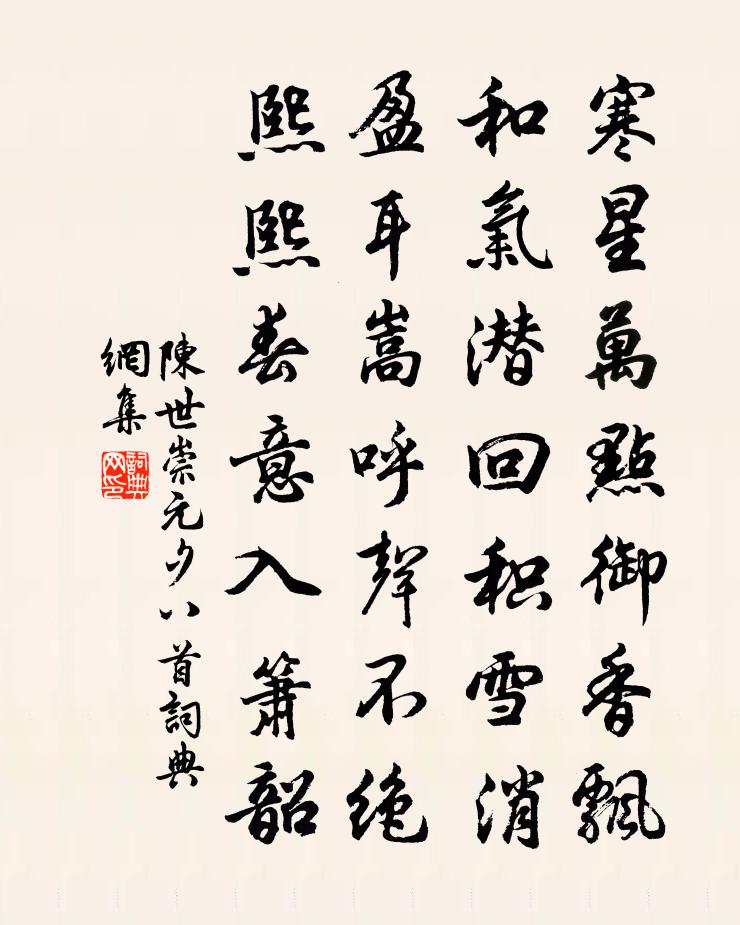 寒星萬點御香飄
和氣潛回积雪消
盈耳嵩呼聲不绝
熙熙春意入箫韶
陳世崇元夕八首詞典
網集
詞典
网印